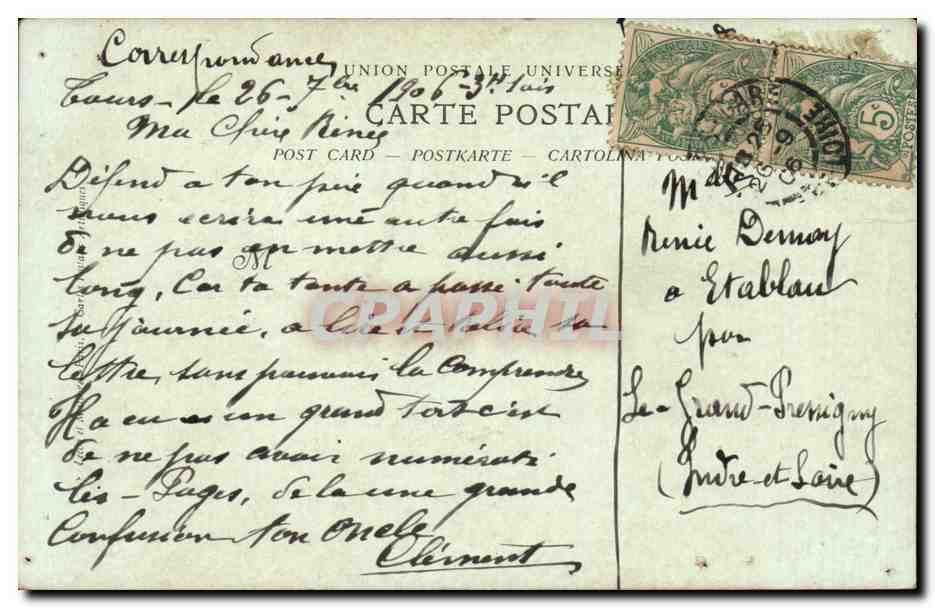 Correspondance
UNION POSTALE UNIVERSE
Tours - le 26 - 7bre 1906 - 3H soir
CARTE POSTAL
Ma Chère Renée
POST CARD — POSTKARTE — CARTOLINA POS
Défend a ton père quand il
nous ecrira une autre fois
de ne pas en mettre aussi
long, Car ta tante a passé toute
sa journée, a lire et relire sa
lettre, sans pouvoir la Comprendre
Il a eu un grand tort c'est
de ne pas avoir numéroté
les - Pages, de la une grande
Confusion ton Oncle
Clément
Mdle
Renée Demay
a Etableau
par
Le - Grand - Pressigny
(Indre et Loire)
5c
POSTES
CPAPHIL